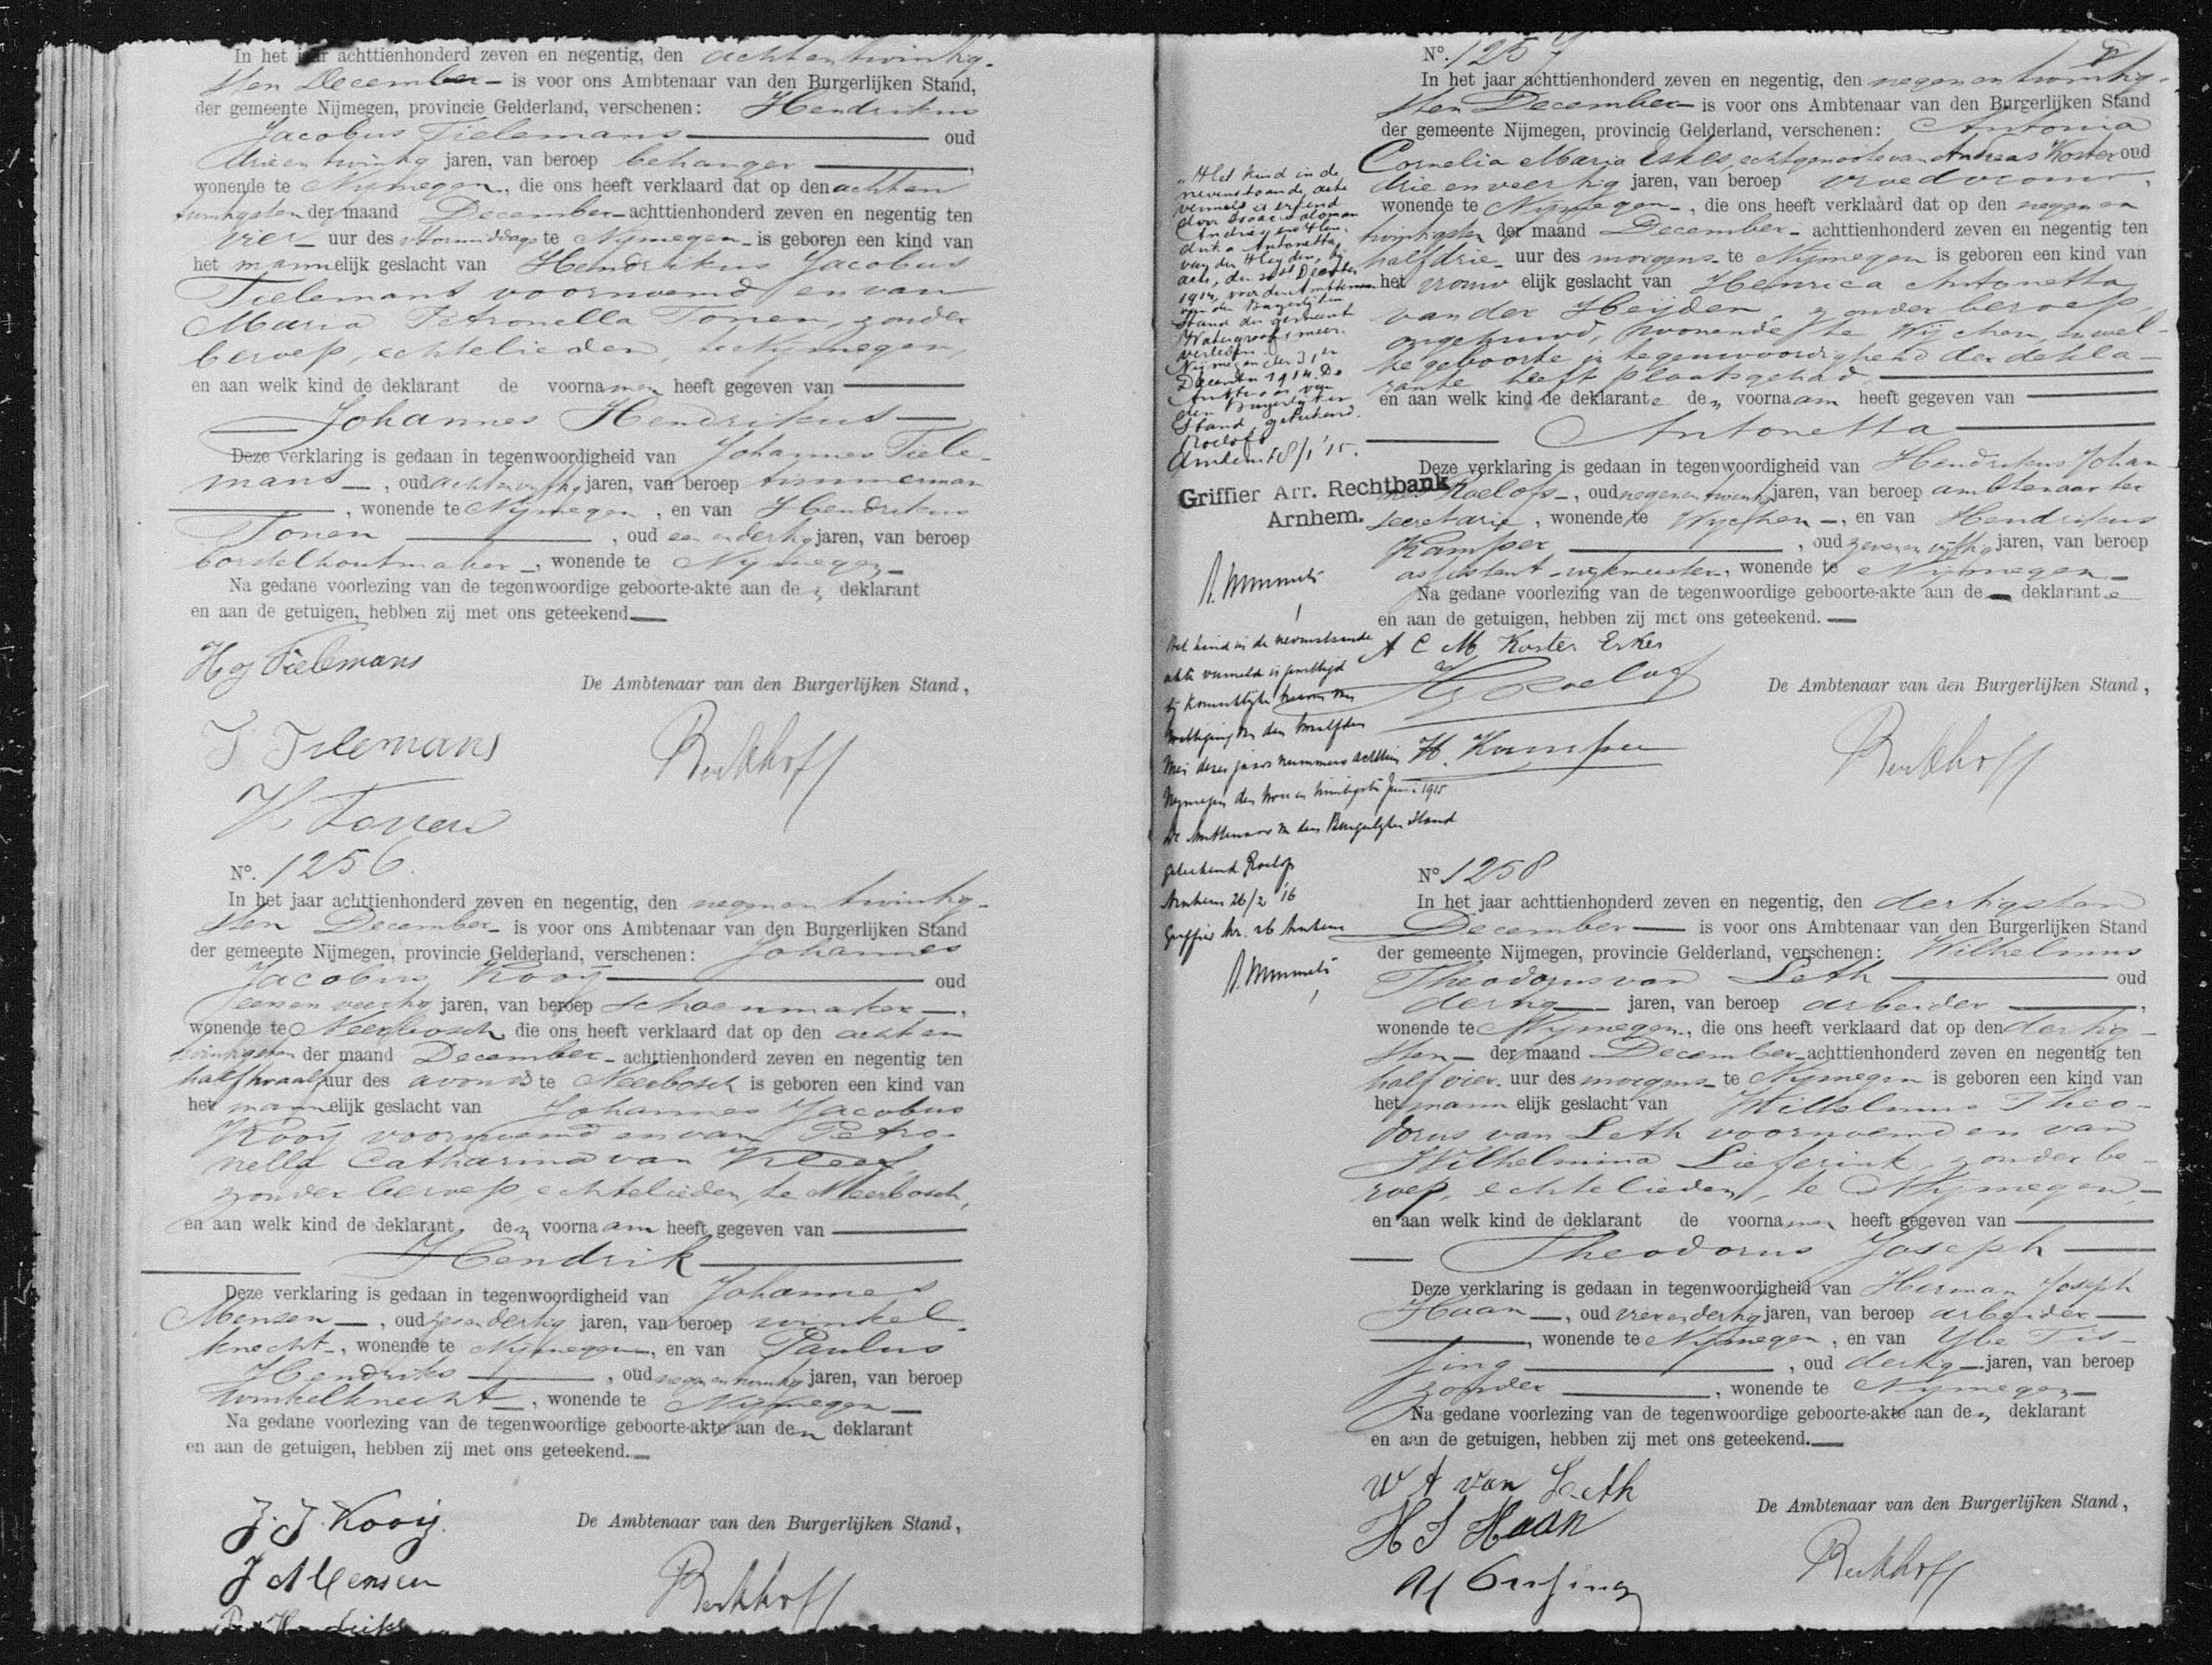 In het jaar achttienhonderd zeven en negentig, den achtentwintig-
sten December - is voor ons Ambtenaar van den Burgerlijken Stand,
der gemeente Nijmegen, provincie Gelderland, verschenen: Hendrikus
Jacobus Tielemans oud
drieentwintig jaren, van beroep behanger,
wonende te Nijmegen, die ons heeft verklaard dat op den achten
twintigsten der maand December - achttienhonderd zeven en negentig ten
vier - uur des voormiddags te Nijmegen - is geboren een kind van
het mannelijk geslacht van Hendrikus Jacobus
Tielemans voornoemd en van
Maria Petronella Tonen, zonder
beroep, echtelieden, te Nijmegen,
en aan welk kind de deklarant de voornamen heeft gegeven van
Johannes Hendrikus
Deze verklaring is gedaan in tegenwoordigheid van Johannes Tiele-
mans -, oud jaren, van beroep timmerman
, wonende te Nijmegen, en van Hendrikus
Tonen, oud een en dertig jaren, van beroep
borstelhoutmaker -, wonende te Nijmegen -
Na gedane voorlezing van de tegenwoordige geboorte-akte aan den deklarant
en aan de getuigen, hebben zij met ons geteekend.
H J Tielemans
De Ambtenaar van den Burgerlijken Stand,
J Tielemans
H Tonen
No. 1256.
In het jaar achttienhonderd zeven en negentig, den negenentwintig-
sten December - is voor ons Ambtenaar van den Burgerlijken Stand
der gemeente Nijmegen, provincie Gelderland, verschenen: Johannes
Jacobus Kooij oud
eenenveertig jaren, van beroep schoenmaker -,
wonende te Neerbosch, die ons heeft verklaard dat op den achten
twintigsten der maand December - achttienhonderd zeven en negentig ten
halftwaalf uur des avonds te Neerbosch is geboren een kind van
het mannelijk geslacht van Johannes Jacobus
Kooij voornoemd en van Petro-
nella Catharina van Kleef,
zonder beroep, echtelieden, te Neerbosch,
en aan welk kind de deklarant, den voornaam heeft gegeven van
Hendrik
Deze verklaring is gedaan in tegenwoordigheid van Johannes
Mensen -, oud zesendertig jaren, van beroep winkel-
knecht -, wonende te Nijmegen -, en van Paulus
Hendriks, oud negenentwintig jaren, van beroep
winkelknecht -, wonende te Nijmegen -
Na gedane voorlezing van de tegenwoordige geboorte-akte aan den deklarant
en aan de getuigen, hebben zij met ons geteekend.
J. J. Kooij.
De Ambtenaar van den Burgerlijken Stand,
J Mensen
P Hendriks
No. 1257
In het jaar achttienhonderd zeven en negentig, den negenentwintig-
sten December - is voor ons Ambtenaar van den Burgerlijken Stand
der gemeente Nijmegen, provincie Gelderland, verschenen: Antonia
Cornelia Maria Eskes, echtgenoote van Andreas Koster oud
drieenveertig jaren, van beroep vroedvrouw,
wonende te Nijmegen -, die ons heeft verklaard dat op den negenen
twintigsten der maand December - achttienhonderd zeven en negentig ten
halfdrie - uur des morgens - te Nijmegen is geboren een kind van
het vrouwelijk geslacht van Henrica Antonetta
van der Heijden, zonder beroep,
ongehuwd, wonende te Wijchen, zijnde wel-
ke geboorte in tegenwoordigheid der dekla-
rante heeft plaatsgehad,
en aan welk kind de deklarante den voornaam heeft gegeven van
Antonetta
Deze verklaring is gedaan in tegenwoordigheid van Hendrikus Johan-
nes Roelofs -, oud negenentwintig jaren, van beroep ambtenaar ter
secretarie, wonende te Wijchen -, en van Hendrikus
Kamper, oud zevenenvijftig jaren, van beroep
assistent-wijkmeester, wonende te Nijmegen -
Na gedane voorlezing van de tegenwoordige geboorte-akte aan de deklarante
en aan de getuigen, hebben zij met ons geteekend.
A C M Koster Eskes
H J Roelofs
De Ambtenaar van den Burgerlijken Stand,
H. Kamper
„Het kind in de
nevenstaande acte
vermeld is erkend
door Isaac Salomon
Andries en Hen-
drika Antonetta
van der Heyden, bij
acte, den December
1914, voor den Ambtenaar
van den Burgerlijken
Stand der gemeente
Watergraafsmeer
verleden.
Nijmegen den 31en
December 1914. De
Ambtenaar van
den Burgerlijken
Stand, geteekend.
Roelofs
Arnhem 18/1 '15.
Griffier Arr. Rechtbank
Arnhem.
Het kind in de nevenstaande
akte vermeld is gewettigd
bij Koninklijke brieven van
wettiging van den twaalfden
Mei dezes jaars nummero achttien
Nijmegen den twee en twintigsten Juni 1915
De Ambtenaar van den Burgerlijken Stand
geteekend Roelofs
Arnhem 26/2 '16
Griffier Arr. rb Arnhem
No 1258
In het jaar achttienhonderd zeven en negentig, den dertigsten
December is voor ons Ambtenaar van den Burgerlijken Stand
der gemeente Nijmegen, provincie Gelderland, verschenen: Wilhelmus
Theodorus van Leth oud
dertig jaren, van beroep arbeider,
wonende te Nijmegen -, die ons heeft verklaard dat op den dertig-
sten - der maand December - achttienhonderd zeven en negentig ten
halfvier uur des morgens - te Nijmegen is geboren een kind van
het mannelijk geslacht van Wilhelmus Theo-
dorus van Leth voornoemd en van
Wilhelmina Lieferink, zonder be-
roep, echtelieden, te Nijmegen -
en aan welk kind de deklarant de voornamen heeft gegeven van
Theodorus Joseph
Deze verklaring is gedaan in tegenwoordigheid van Herman Joseph
Haan -, oud vierendertig jaren, van beroep arbeider
, wonende te Nijmegen, en van Ybe Tis-
sing, oud dertig - jaren, van beroep
zonder, wonende te Nijmegen -
Na gedane voorlezing van de tegenwoordige geboorte-akte aan den deklarant
en aan de getuigen, hebben zij met ons geteekend.
W T van Leth
De Ambtenaar van den Burgerlijken Stand,
H J Haan